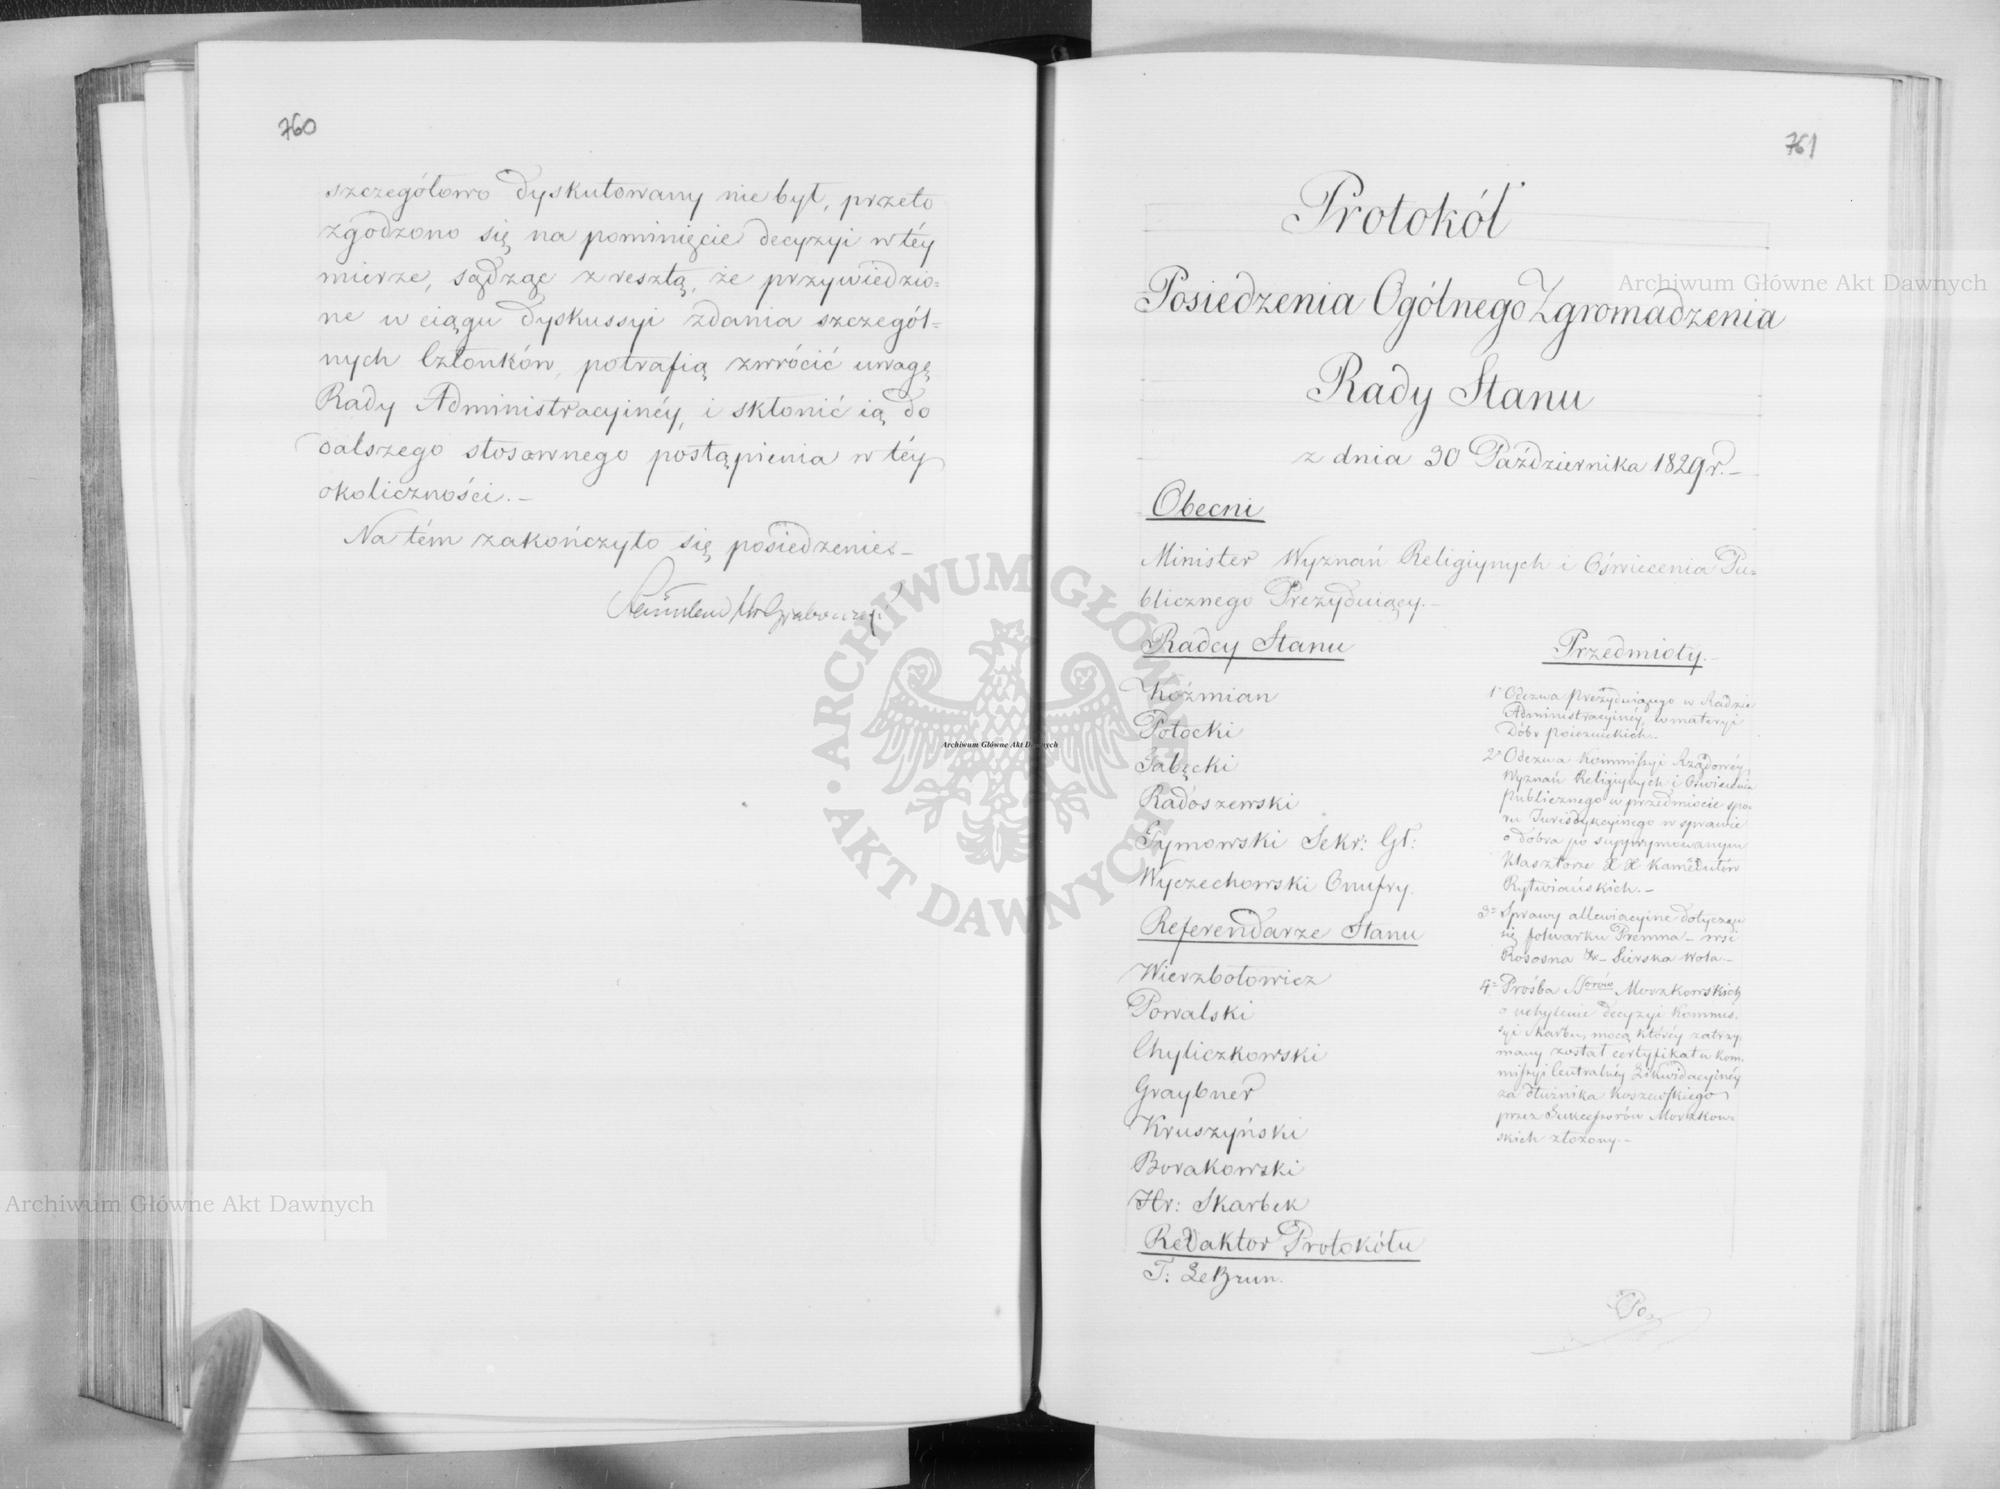 760
szczegółowo dyskutowany nie był, przeto
zgodzono się na pominięcie decyzyi w téy
mierze, sądząc z resztą, że przywiedzio=
ne w ciągu dyskussyi zdania szczegól=
nych Członków, potrafią zwrócić uwagę
Rady Administracyinéy, i skłonić ią do
dalszego stosownego postąpienia w téy
okoliczności.–
Na tém zakończyło się posiedzenie.–
761
Protokół
Posiedzenia Ogólnego Zgromadzenia
Rady Stanu
z dnia 30 Października 1829 r.–
Obecni
Minister Wyznań Religiynych i Oświecenia Pu=
blicznego Prezyduiący.–
Radcy Stanu
Koźmian
Potocki
Sabęcki
Radoszewski
Tymowski Sekr: Gł:
Wyczechowski Onufry.
Referendarze Stanu
Wierzbołowicz
Powalski
Chyliczkowski
Graybner
Kruszyński
Borakowski
Hr: Skarbek
Redaktor Protokółu
T: Le Brun.
Przedmioty.–
1° Odezwa Prezyduiącego w Radzie
Administracyinéy, w materyi
Dóbr poiezuickich.–
2° Odezwa Kommissyi Rządowéy
Wyznań Religiynych i Oświecenia
Publicznego w przedmiocie spo=
ru Jurisdykcyinego w sprawie
o dobra po suprymowanym
Klasztorze X X Kamedułów
Rytwiańskich.–
3° Sprawy allewiacyine dotyczące
się folwarku Premna – wsi
Rososna & – Sierska Wola.–
4° Prośba SSorów Morzkowskich
o uchylenie decyzyi Kommis=
syi Skarbu, mocą któréy zatrzy=
many został certyfikat w Kom=
missyi Centralnéy Likwidacyinéy
za dłużnika Koszewskiego
przez Sukcessorów Morzkow=
skich złożony.–
Archiwum Główne Akt Dawnych
Archiwum Główne Akt Dawnych
Archiwum Główne Akt Dawnych
ARCHIWUM GŁÓWNE AKT DAWNYCH